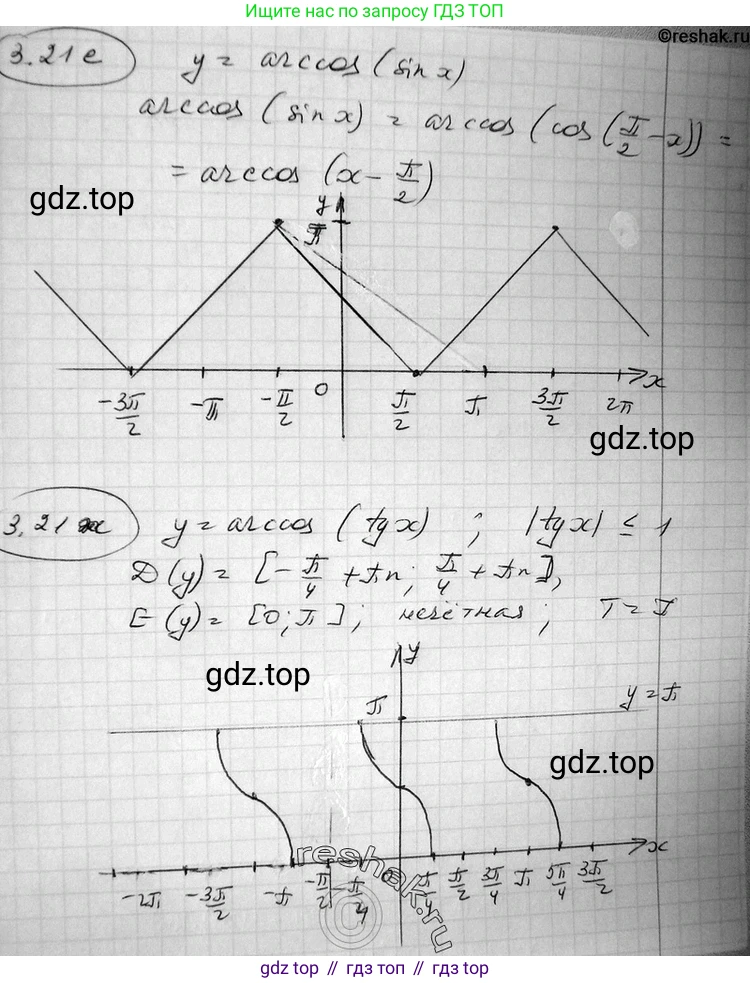 Ищите нас по запросу ГДЗ ТОП
©reshak.ru
3.21 е y = arccos (sin x)
arccos (sin x) = arccos (cos (π/2 - x)) =
= arccos (x - π/2)
gdz.top
y
π
-3π/2 -π -π/2 0 π/2 π 3π/2 2π x
gdz.top
3.21 ж y = arccos (tg x) ; |tg x| ≤ 1
D (y) = [-π/4 + πn; π/4 + πn],
E (y) = [0; π]; нечётная; T = π
gdz.top
y
π y = π
gdz.top
reshak.ru
-2π -3π/2 -π -π/2 -π/4 0 π/4 π/2 3π/4 π 5π/4 3π/2 x
©
gdz top // гдз топ // gdz top